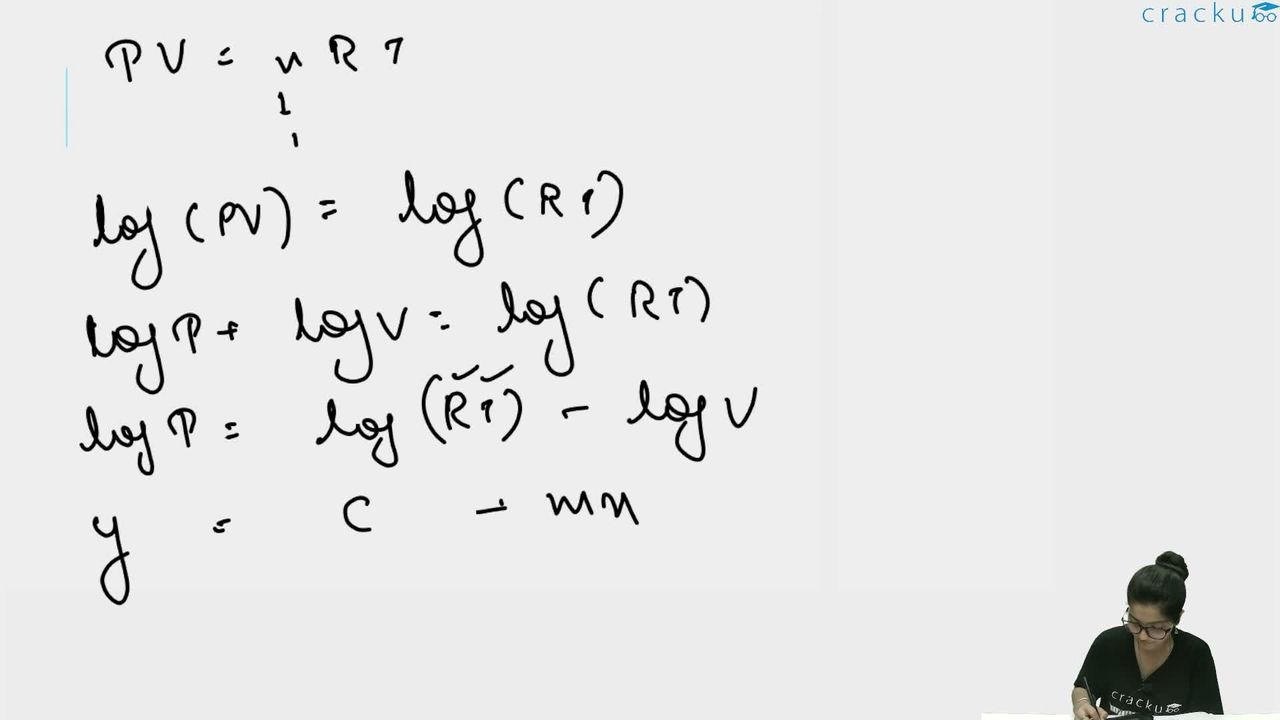 cracku
PV = nRT
1
1
log (PV) = log (RT)
log P + log V = log (RT)
log P = log (RT) - log V
y = c - mx
cracku